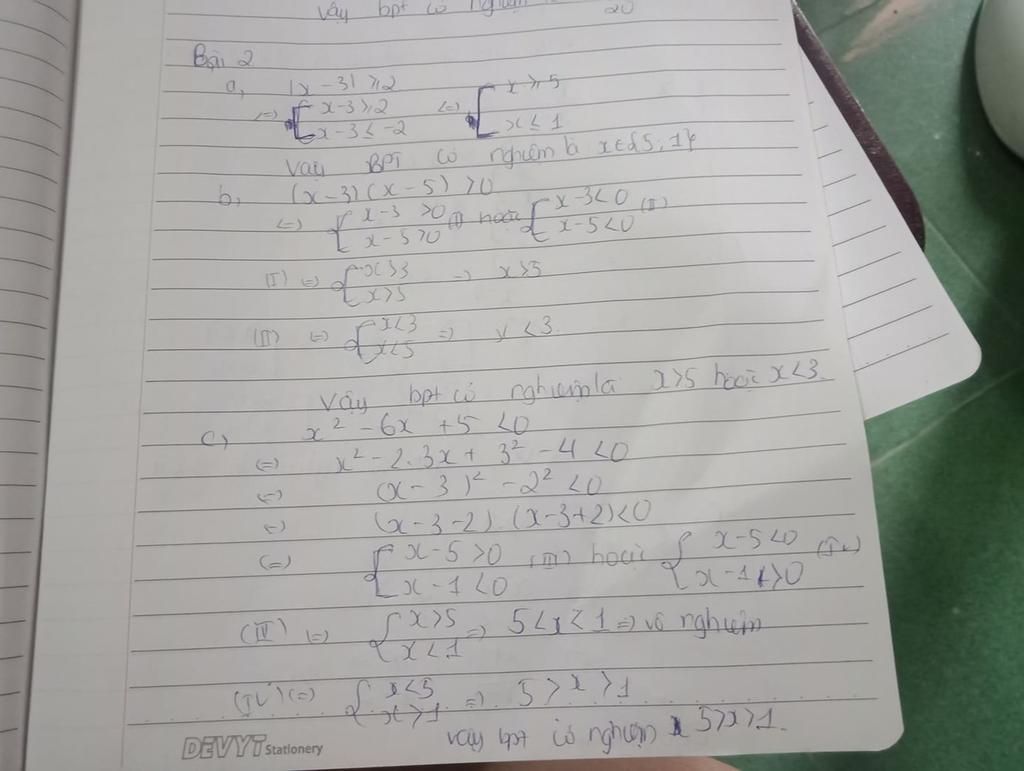 Vậy bpt có nghiệm
Bài 2
a, |x - 3| ≥ 2
(=) [ x-3 ≥ 2 (=) [ x ≥ 5
x-3 ≤ -2 x ≤ 1
Vậy BPT có nghiệm là x ∈ {5; 1}
b, (x-3)(x-5) > 0
(=) { x-3 > 0 (I) hoặc { x-3 < 0 (II)
x-5 > 0 x-5 < 0
(I) (=) { x > 3 => x > 5
x > 5
(II) (=) { x < 3 => x < 3.
x < 5
Vậy bpt có nghiệm là x > 5 hoặc x < 3.
c, x² - 6x + 5 < 0
(=) x² - 2.3x + 3² - 4 < 0
(=) (x-3)² - 2² < 0
(=) (x-3-2).(x-3+2) < 0
(=) { x-5 > 0 (III) hoặc { x-5 < 0 (IV)
x-1 < 0 x-1 > 0
(III) (=) { x > 5 => 5 < x < 1 => vô nghiệm
x < 1
(IV) (=) { x < 5 => 5 > x > 1
x > 1
Vậy bpt có nghiệm 5 > x > 1.
DEVYT Stationery